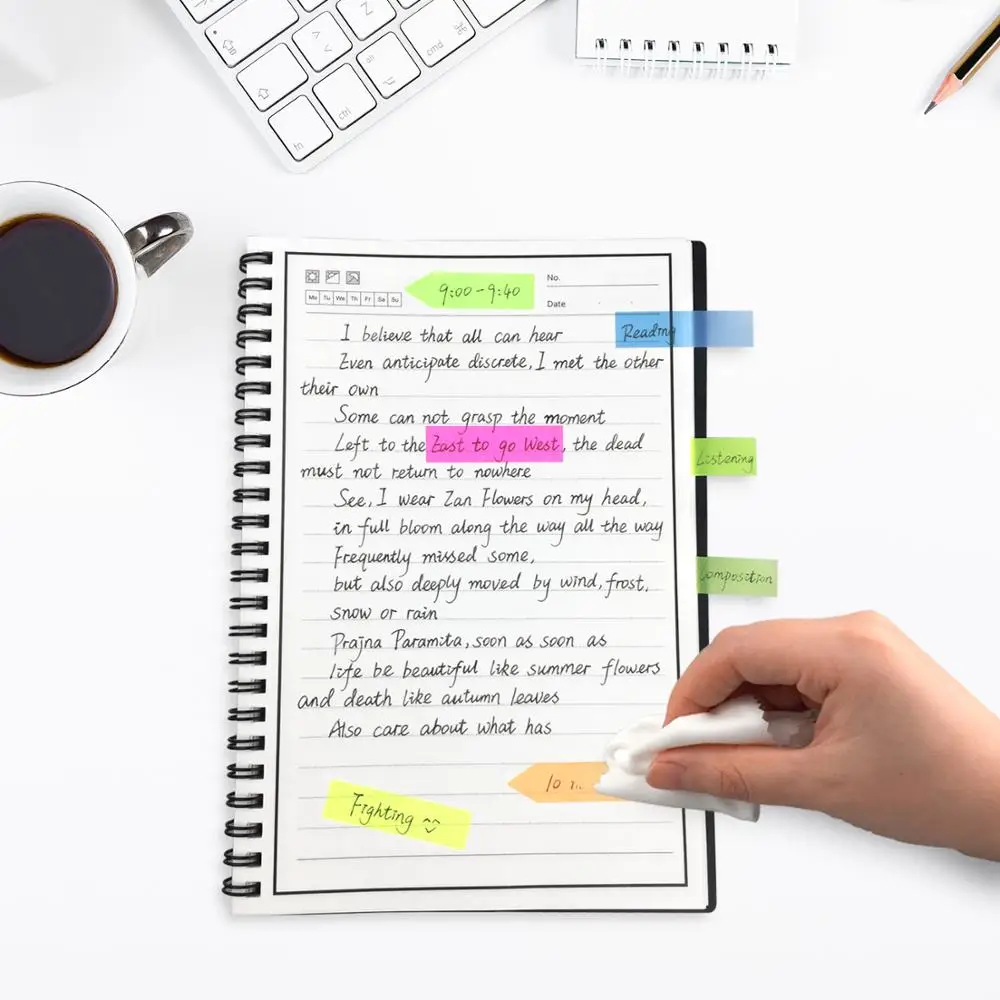 Z
< >
alt
cmd
ctrl
fn
Mo Tu We Th Fr Sa Su
9:00-9:40
No.
Date
Reading
I believe that all can hear
Even anticipate discrete, I met the other
their own
Some can not grasp the moment
Left to the East to go West, the dead
must not return to nowhere
Listening
See, I wear Zan Flowers on my head,
in full bloom along the way all the way
Frequently missed some,
but also deeply moved by wind, frost,
Composition
snow or rain
Prajna Paramita, soon as soon as
life be beautiful like summer flowers
and death like autumn leaves
Also care about what has
10
Fighting